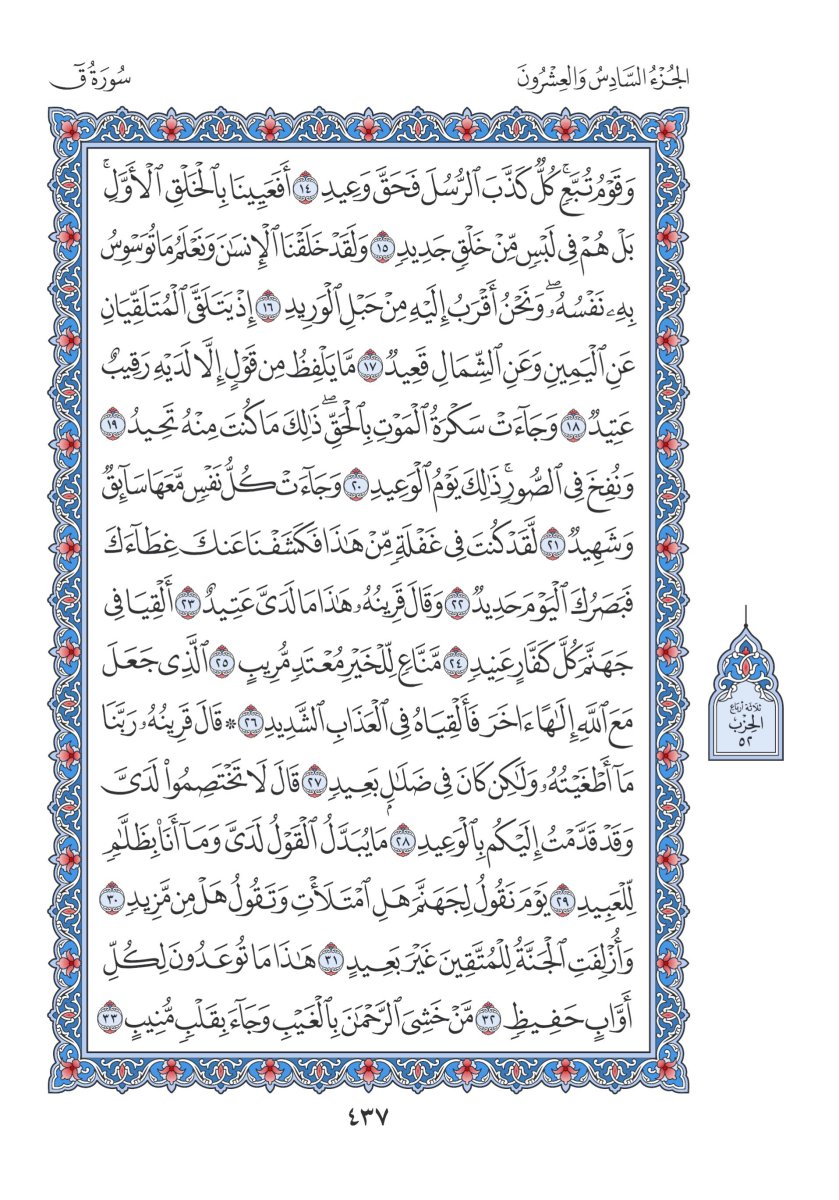 الجُزْءُ السَّادِسُ وَالعِشْرُونَ
سُورَةُ قٓ
وَقَوْمُ تُبَّعٖۚ كُلّٞ كَذَّبَ ٱلرُّسُلَ فَحَقَّ وَعِيدِ ١٤ أَفَعَيِينَا بِٱلۡخَلۡقِ ٱلۡأَوَّلِۚ
بَلۡ هُمۡ فِي لَبۡسٖ مِّنۡ خَلۡقٖ جَدِيدٖ ١٥ وَلَقَدۡ خَلَقۡنَا ٱلۡإِنسَٰنَ وَنَعۡلَمُ مَا تُوَسۡوِسُ
بِهِۦ نَفۡسُهُۥۖ وَنَحۡنُ أَقۡرَبُ إِلَيۡهِ مِنۡ حَبۡلِ ٱلۡوَرِيدِ ١٦ إِذۡ يَتَلَقَّى ٱلۡمُتَلَقِّيَانِ
عَنِ ٱلۡيَمِينِ وَعَنِ ٱلشِّمَالِ قَعِيدٞ ١٧ مَّا يَلۡفِظُ مِن قَوۡلٍ إِلَّا لَدَيۡهِ رَقِيبٌ
عَتِيدٞ ١٨ وَجَآءَتۡ سَكۡرَةُ ٱلۡمَوۡتِ بِٱلۡحَقِّۖ ذَٰلِكَ مَا كُنتَ مِنۡهُ تَحِيدُ ١٩
وَنُفِخَ فِي ٱلصُّورِۚ ذَٰلِكَ يَوۡمُ ٱلۡوَعِيدِ ٢٠ وَجَآءَتۡ كُلُّ نَفۡسٖ مَّعَهَا سَآئِقٞ
وَشَهِيدٞ ٢١ لَّقَدۡ كُنتَ فِي غَفۡلَةٖ مِّنۡ هَٰذَا فَكَشَفۡنَا عَنكَ غِطَآءَكَ
فَبَصَرُكَ ٱلۡيَوۡمَ حَدِيدٞ ٢٢ وَقَالَ قَرِينُهُۥ هَٰذَا مَا لَدَيَّ عَتِيدٌ ٢٣ أَلۡقِيَا فِي
جَهَنَّمَ كُلَّ كَفَّارٍ عَنِيدٖ ٢٤ مَّنَّاعٖ لِّلۡخَيۡرِ مُعۡتَدٖ مُّرِيبٍ ٢٥ ٱلَّذِي جَعَلَ
مَعَ ٱللَّهِ إِلَٰهًا ءَاخَرَ فَأَلۡقِيَاهُ فِي ٱلۡعَذَابِ ٱلشَّدِيدِ ٢٦ * قَالَ قَرِينُهُۥ رَبَّنَا
مَآ أَطۡغَيۡتُهُۥ وَلَٰكِن كَانَ فِي ضَلَٰلِۭ بَعِيدٖ ٢٧ قَالَ لَا تَخۡتَصِمُواْ لَدَيَّ
وَقَدۡ قَدَّمۡتُ إِلَيۡكُم بِٱلۡوَعِيدِ ٢٨ مَا يُبَدَّلُ ٱلۡقَوۡلُ لَدَيَّ وَمَآ أَنَا۠ بِظَلَّٰمٖ
لِّلۡعَبِيدِ ٢٩ يَوۡمَ نَقُولُ لِجَهَنَّمَ هَلِ ٱمۡتَلَأۡتِ وَتَقُولُ هَلۡ مِن مَّزِيدٖ ٣٠
وَأُزۡلِفَتِ ٱلۡجَنَّةُ لِلۡمُتَّقِينَ غَيۡرَ بَعِيدٍ ٣١ هَٰذَا مَا تُوعَدُونَ لِكُلِّ
أَوَّابٍ حَفِيظٖ ٣٢ مَّنۡ خَشِيَ ٱلرَّحۡمَٰنَ بِٱلۡغَيۡبِ وَجَآءَ بِقَلۡبٖ مُّنِيبٍ ٣٣
ثلاثة أرباع
الحِزْب
٥٢
٤٣٧